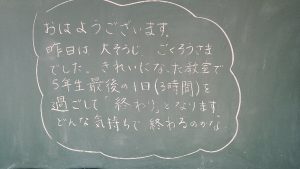 おはようございます。
昨日は大そうじ、ごくろうさま
でした。きれいになった教室で
5年生最後の1日(3時間)を
過ごして「終わり」となります。
どんな気持ちで終わるのかな